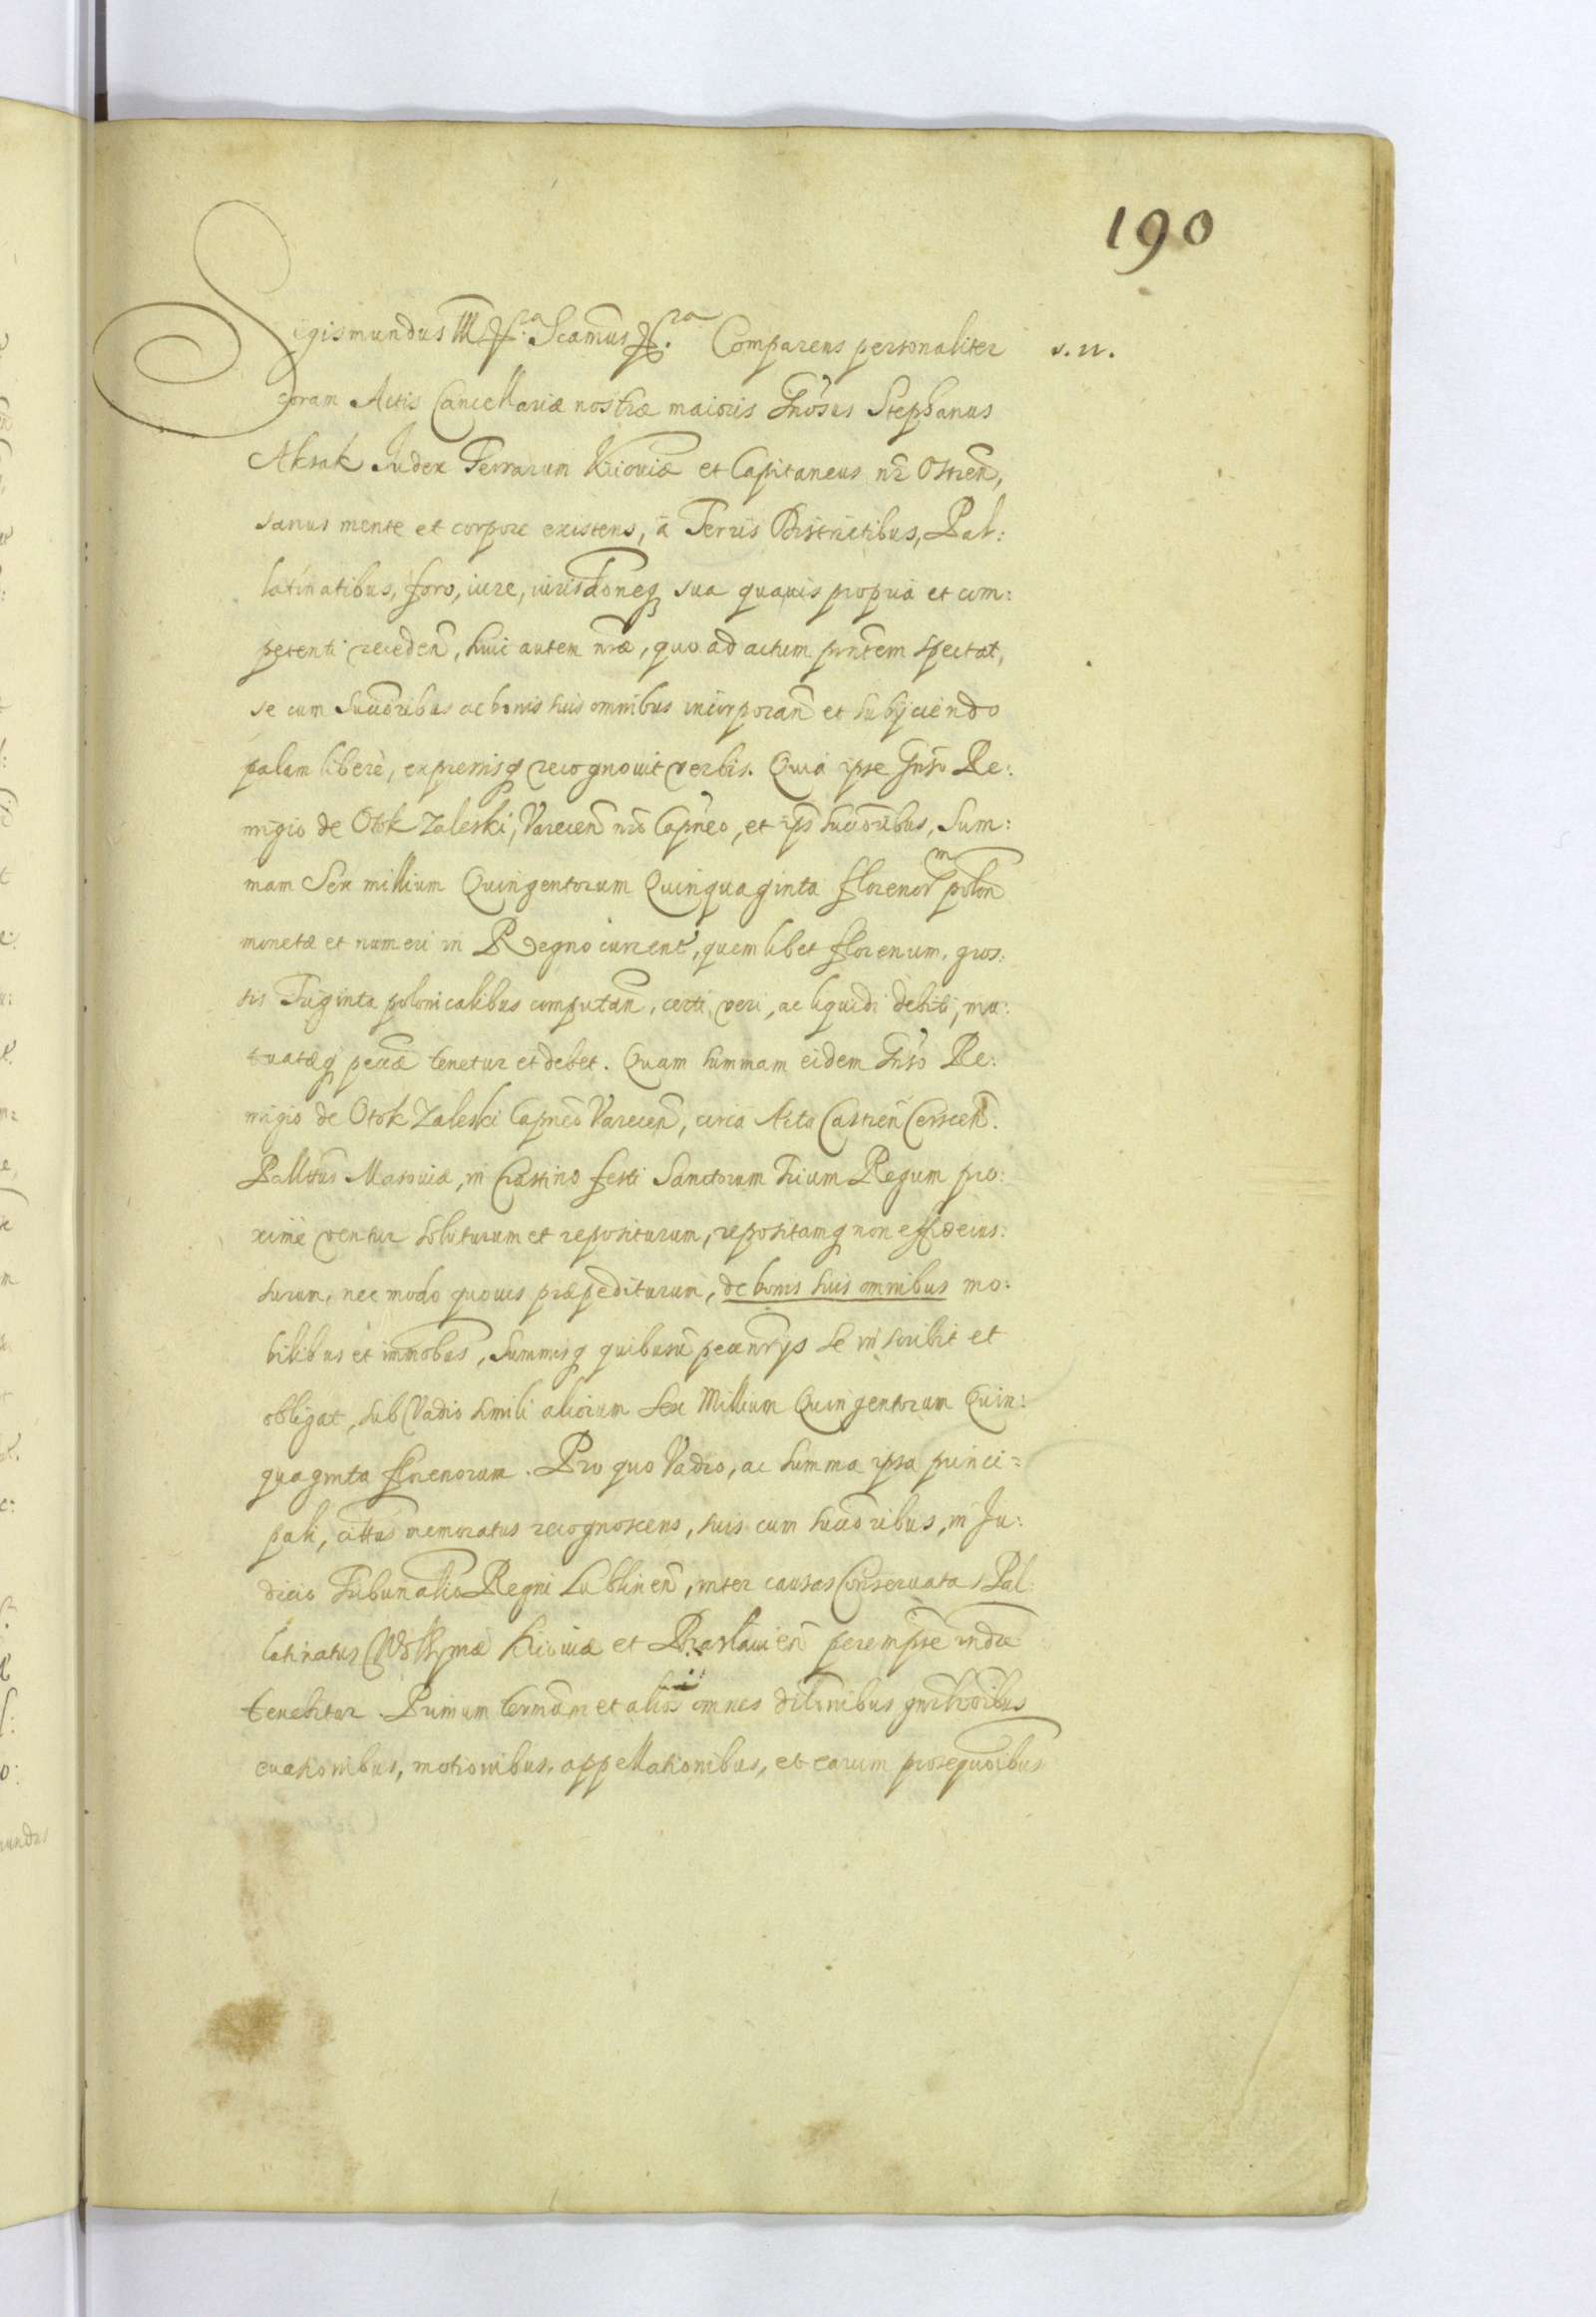 190
Sigismundus III &c.ra Scamus &c.ra Comparens personaliter
s. n.
coram Actis Cancellariæ nostræ maioris Gnosus Stephanus
Aksak Iudex Terrarum Kijouiæ et Capitaneus nr Ostren,
sanus mente et corpore existens, à Terris Districtibus, Pal:
latinatibus, foro, iure, iurisdoneq sua quauis propria et com:
petenti receden, huic autem nræ, quo ad actum prntem spectat,
se cum succoribus ac bonis suis omnibus incorporan et subijciendo
palam liberè, expressisq recognouit verbis. Quia ipse Gnso Re:
migio de Otok Zaleski, Varecen nro Capneo, et ips succoribus, Sum:
mam Sex millium Quingentorum Quinquaginta florenorm polon
monetæ et numeri in Regno current, quemlibet florenum, gros:
sis Triginta polonicalibus computan, certi, veri, ac liquidi debiti, mu:
tuatæq pecæ tenetur et debet. Quam summam eidem Gnso Re:
migio de Otok Zaleski Capneo Varecen, circa Acta Castren Cerscen.
Pallttus Masouiæ, in Crastino festi Sanctorum Trium Regum pro:
xime ventur soluturum et repositurum, repositamq non
surum, nec modo quouis præpediturum, de bonis suis omnibus mo:
bilibus et immobus, summisq quibusu pecunrys se inscribit et
obligat, sub Vadio simili aliorum sex Millium Quingentorum Quin:
quaginta florenorum. Pro quo Vadio, ac summa ipsa princi=
pali, cittus memoratus recognoscens, suis cum succoribus, in Iu:
dicio Tribunalio Regni Lublinen, inter causas Conseruata Pal:
latinatus Wolhyniæ Kiiouiæ et Braslauien perempie
tenebitur. Primum termnum et alios omnes dilonibus
euasionibus, motionibus, appellationibus, et earum prosequoibus